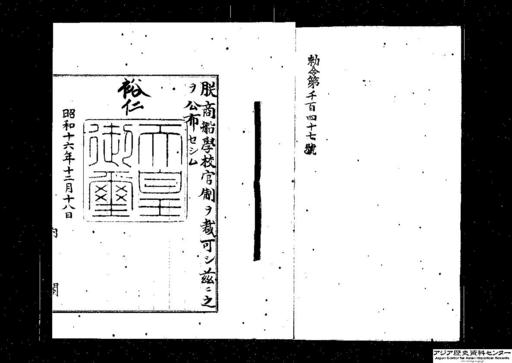 勅令第千百四十七號
朕商船學校官制ヲ裁可シ茲ニ之
ヲ公布セシム
裕仁
天皇
御璽
昭和十六年十二月十八日
内閣
アジア歴史資料センター
Japan Center for Asian Historical Records